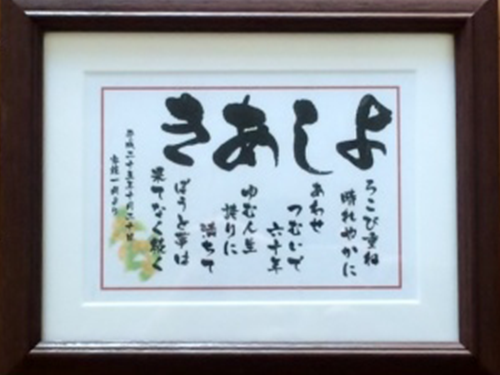 よしあき
ろこび重ね
晴れやかに
あわせ
つむいで
六十年
ゆむ人生
誇りに
満ちて
ぼうと夢は
果てなく続く
平成二十五年十月二十日
家族一同より